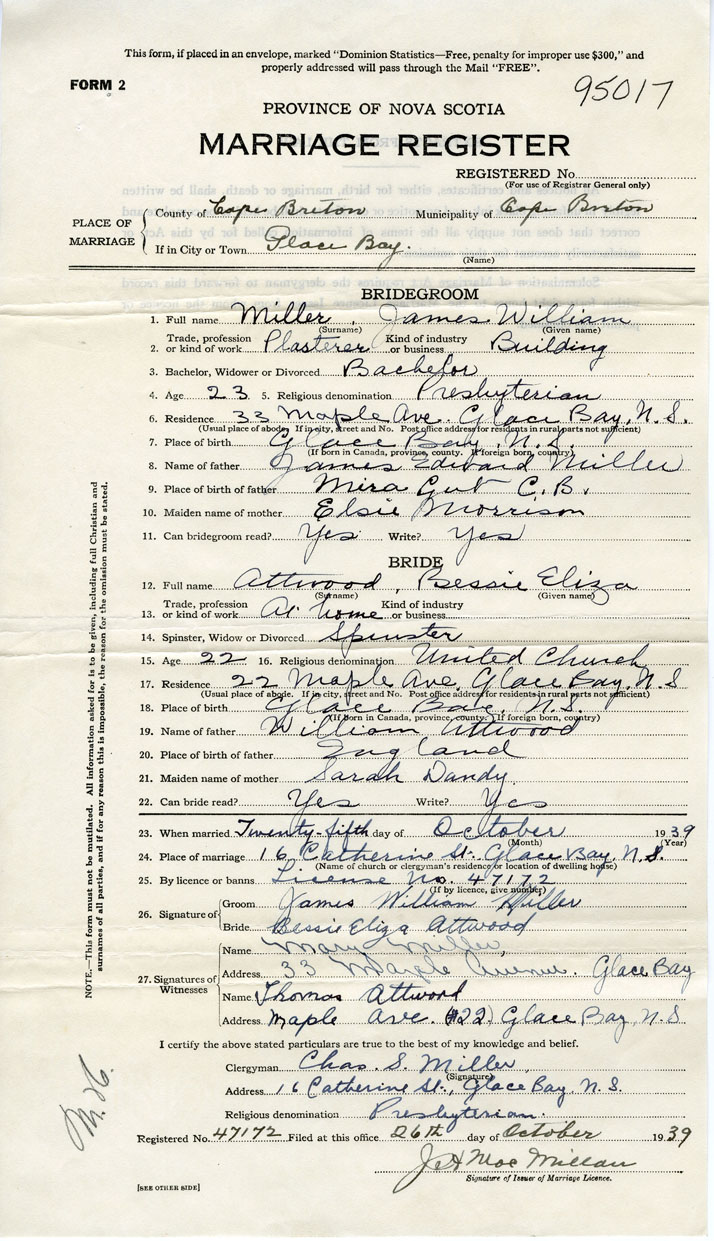 This form, if placed in an envelope, marked "Dominion Statistics—Free, penalty for improper use $300," and
properly addressed will pass through the Mail "FREE".
FORM 2
95017
PROVINCE OF NOVA SCOTIA
MARRIAGE REGISTER
REGISTERED No.
(For use of Registrar General only)
PLACE OF MARRIAGE
County of Cape Breton Municipality of Cape Breton
If in City or Town Glace Bay.
(Name)
BRIDEGROOM
1. Full name Miller, James William
(Surname) (Given name)
2. Trade, profession or kind of work Plasterer Kind of industry or business Building
3. Bachelor, Widower or Divorced Bachelor
4. Age 23 5. Religious denomination Presbyterian
6. Residence 33 Maple Ave. Glace Bay, N.S.
(Usual place of abode. If in city, street and No. Post office address for residents in rural parts not sufficient)
7. Place of birth Glace Bay, N.S.
(If born in Canada, province, county. If foreign born, country)
8. Name of father James Edward Miller
9. Place of birth of father Mira Gut C.B.
10. Maiden name of mother Elsie Morrison
11. Can bridegroom read? Yes Write? Yes
BRIDE
12. Full name Attwood, Bessie Eliza
(Surname) (Given name)
13. Trade, profession or kind of work At home Kind of industry or business
14. Spinster, Widow or Divorced Spinster
15. Age 22 16. Religious denomination United Church
17. Residence 22 Maple Ave, Glace Bay, N.S
(Usual place of abode. If in city, street and No. Post office address for residents in rural parts not sufficient)
18. Place of birth Glace Bay, N.S.
(If born in Canada, province, county. If foreign born, country)
19. Name of father William Attwood
20. Place of birth of father England
21. Maiden name of mother Sarah Dandy
22. Can bride read? Yes Write? Yes
23. When married Twenty-fifth day of October 1939
(Month) (Year)
24. Place of marriage 16 Catherine St. Glace Bay, N.S.
(Name of church or clergyman's residence or location of dwelling house)
25. By licence or banns License No. 47172
(If by licence, give number)
26. Signature of
Groom James William Miller
Bride Bessie Eliza Attwood
27. Signatures of Witnesses
Name Mary Miller,
Address 33 Maple Avenue. Glace Bay
Name Thomas Attwood
Address Maple Ave. (#22) Glace Bay, N.S
I certify the above stated particulars are true to the best of my knowledge and belief.
Clergyman Chas. S. Miller,
(Signature)
Address 16 Catherine St., Glace Bay, N.S.
Religious denomination Presbyterian.
Registered No. 47172 Filed at this office 26th day of October 1939
MacMillan
Signature of Issuer of Marriage Licence.
[SEE OTHER SIDE]
NOTE.—This form must not be mutilated. All information asked for is to be given, including full Christian and
surnames of all parties, and if for any reason this is impossible, the reason for the omission must be stated.